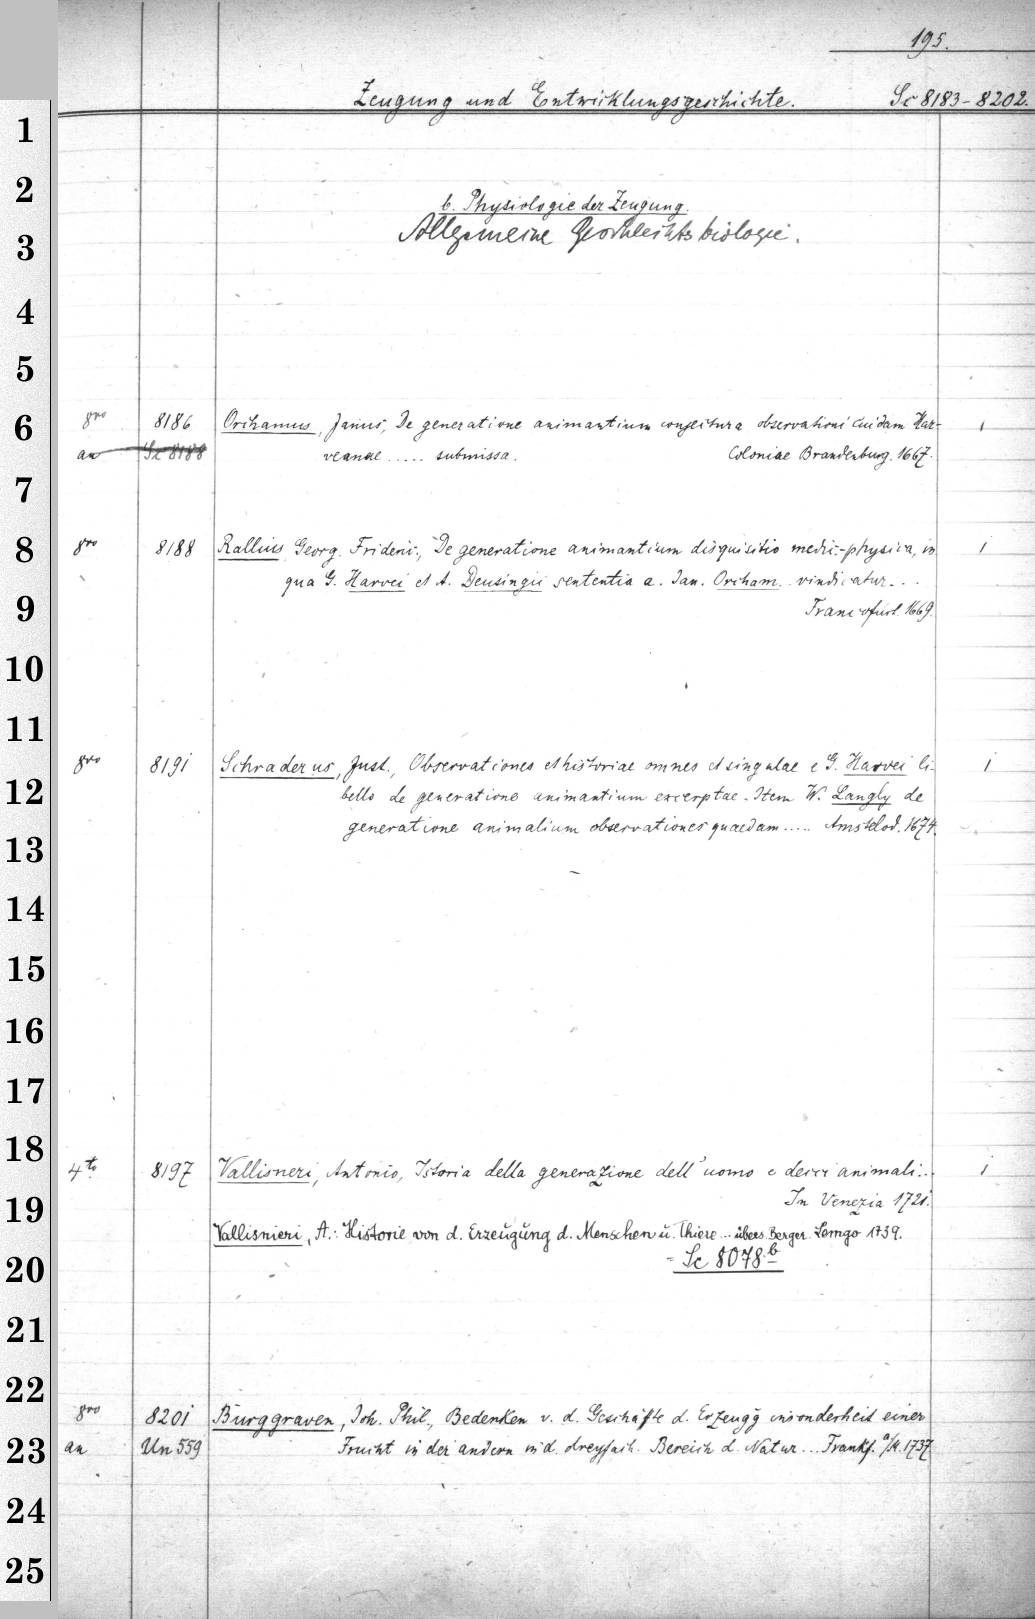 195.
Zeugung und Entwicklungsgeschichte. Sc 8183-8202.
1
2
b. Physiologie der Zeugung.
3
Allgemeine Geschlechtsbiologie.
4
5
6
8vo 8186 Orchamus, Janus, De generatione animantium conjectura observationi cuidam Har- 1
an Sc 8188 veanae ..... submissa. Coloniae Brandenburg. 1667.
7
8
8vo 8188 Rallius, Georg. Frideric., De generatione animantium disquisitio medic.-physica, in 1
qua G. Harvei et A. Deusingii sententia a. Jan. Orcham. vindicatur...
9
Francofurt. 1669.
10
11
8vo 8191 Schraderus, Just., Observationes et historiae omnes et singulae e G. Harvei li- 1
12
bello de generatione animantium excerptae. Item W. Langly de
generatione animalium observationes quaedam ..... Amstelod. 1674.
13
14
15
16
17
18
4to 8197 Vallisneri, Antonio, Istoria della generazione dell'uomo e decci animali... 1
In Venezia 1721.
19
Vallisnieri, A.: Historie von d. Erzeugung d. Menschen u. Thiere ... übers. Berger. Lemgo 1739.
= Sc 8078b
20
21
22
8vo 8201 Burggraven, Joh. Phil., Bedenken v. d. Geschäfte d. Erzeugg insonderheit einer
23
an Un 559 Frucht in der andern in d. dreyfach. Bereich d. Natur ... Frankf. a/M. 1737
24
25